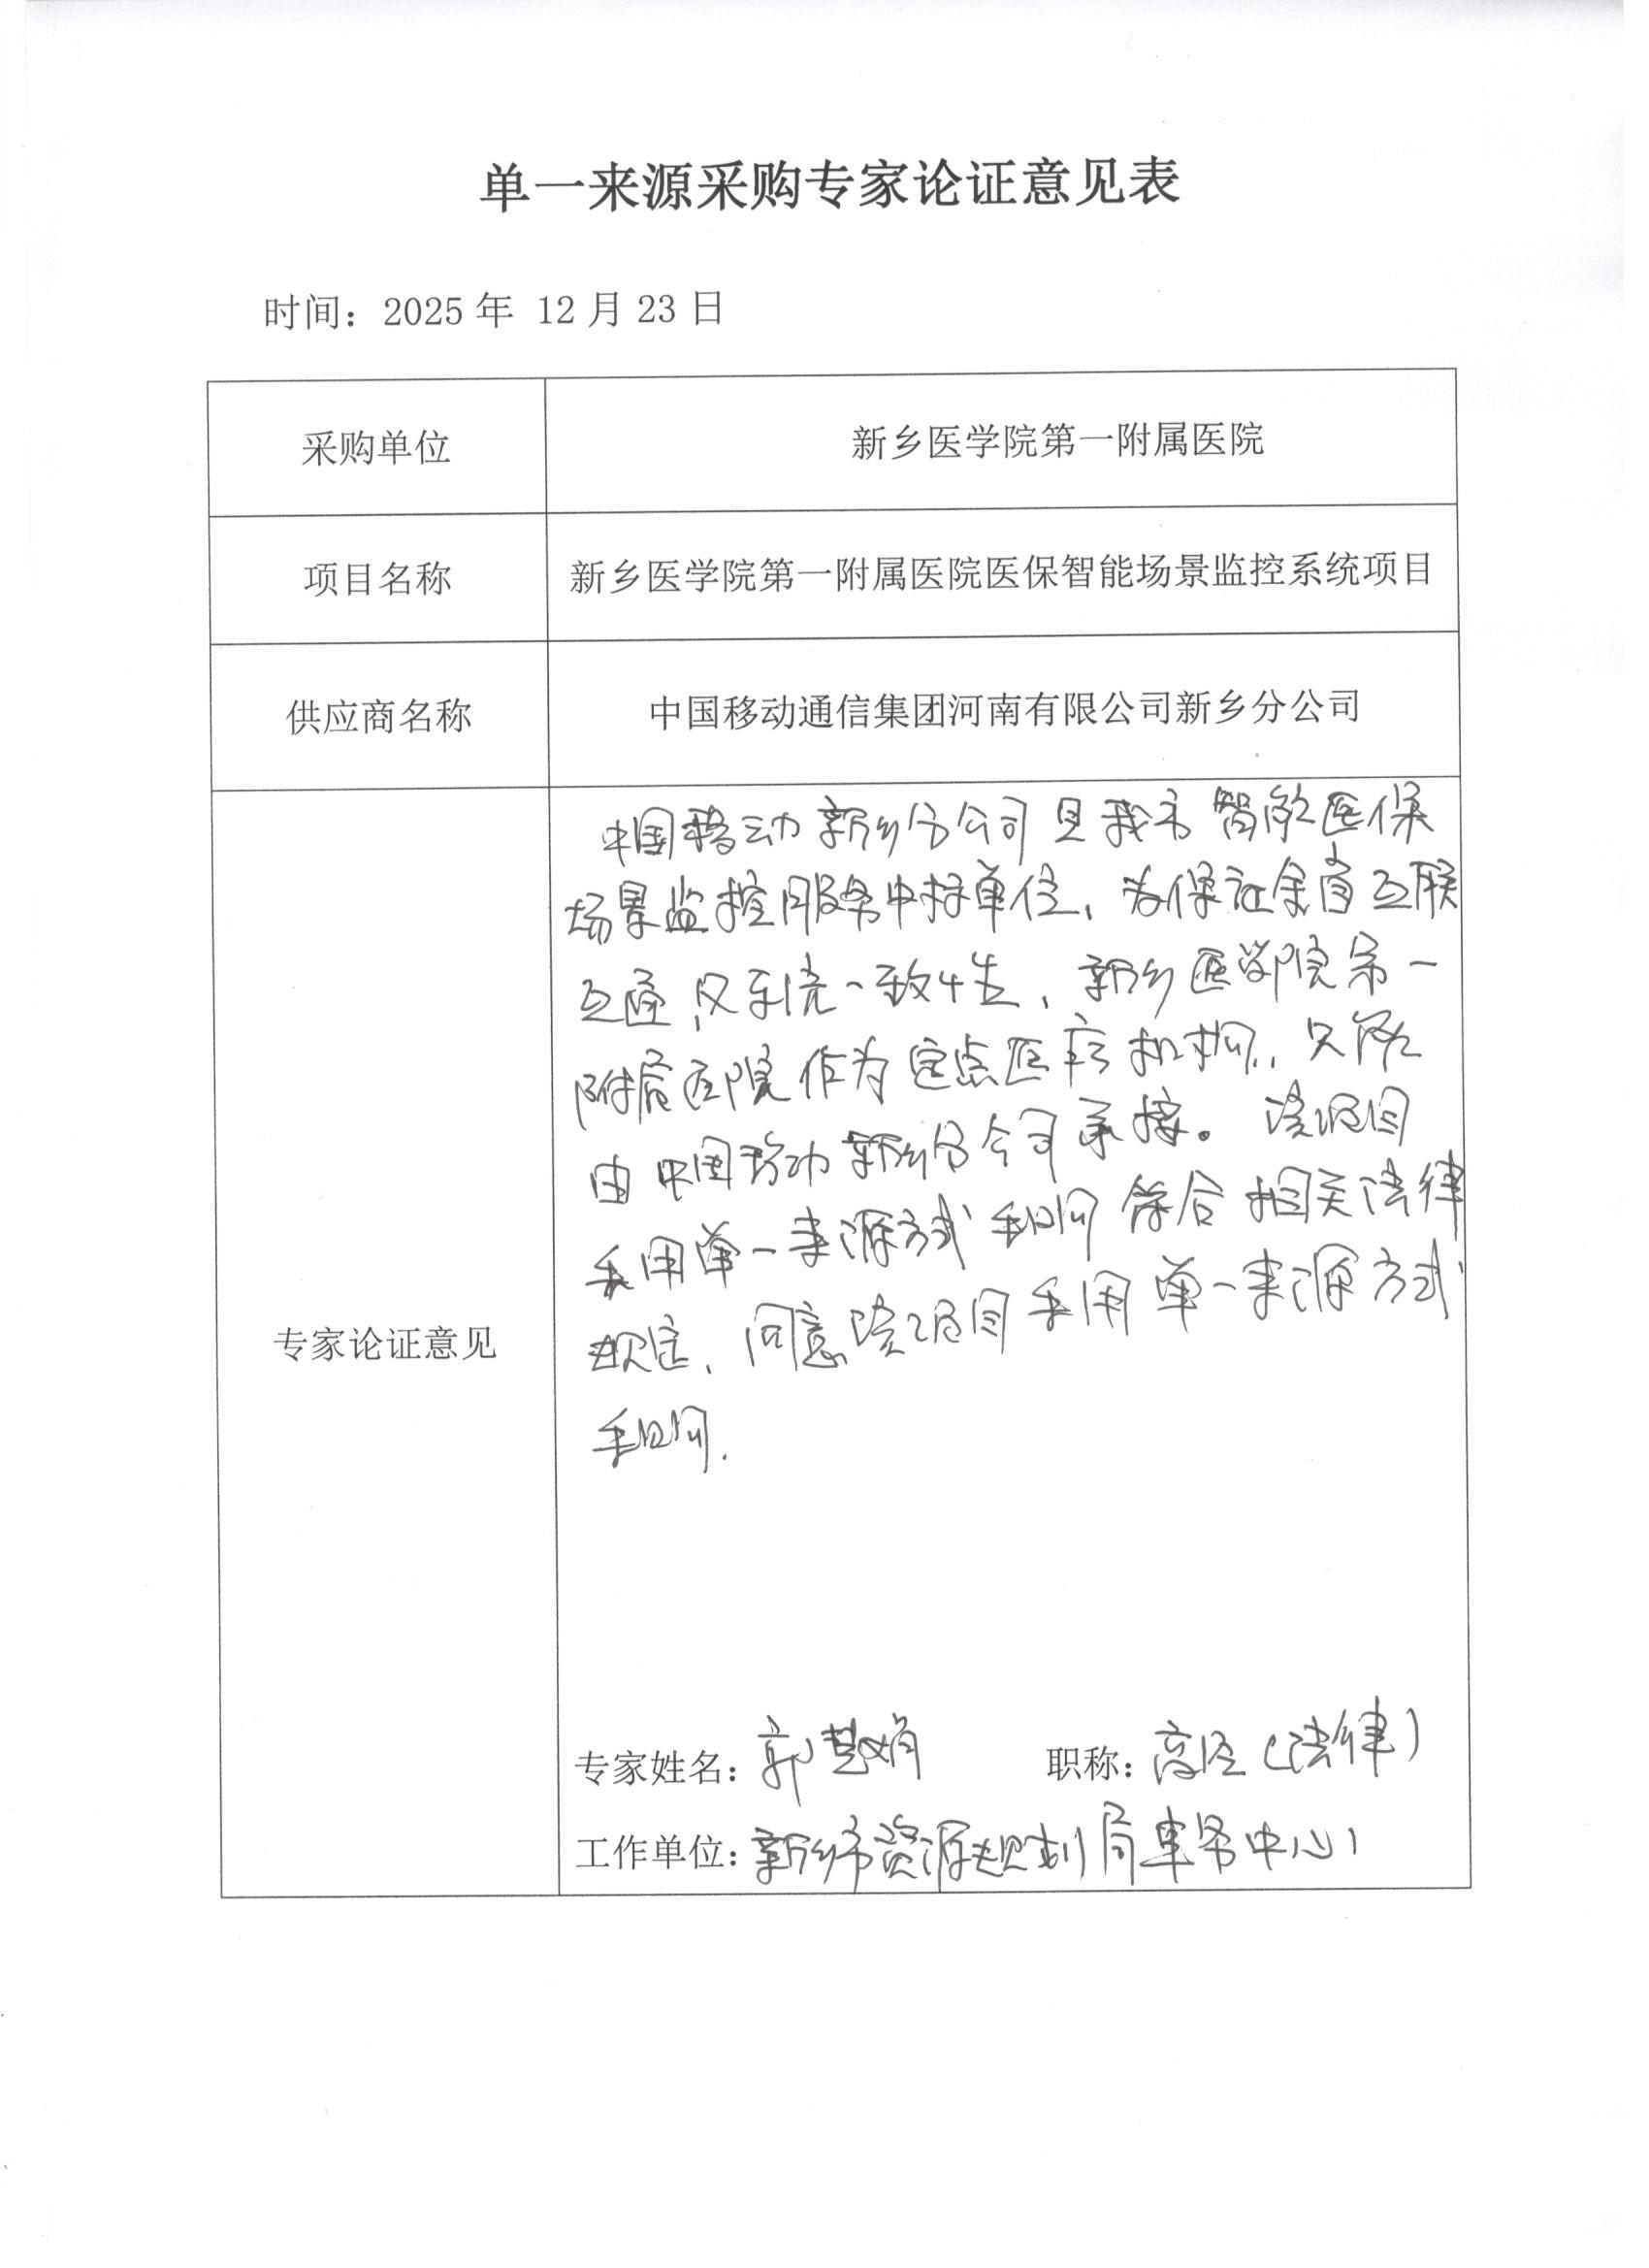 单一来源采购专家论证意见表
时间：2025 年 12 月 23 日
采购单位
新乡医学院第一附属医院
项目名称
新乡医学院第一附属医院医保智能场景监控系统项目
供应商名称
中国移动通信集团河南有限公司新乡分公司
专家论证意见
中国移动新乡分公司是我市智能医保
场景监控服务中标单位，为保证全省互联
互通，及系统一致性，新乡医学院第一
附属医院作为定点医疗机构，只能
由中国移动新乡分公司承接。该项目
采用单一来源方式采购符合相关法律
规定，同意该项目采用单一来源方式
采购.
专家姓名：郭慧娟 职称：高经（法律）
工作单位：新乡市资源规划局事务中心